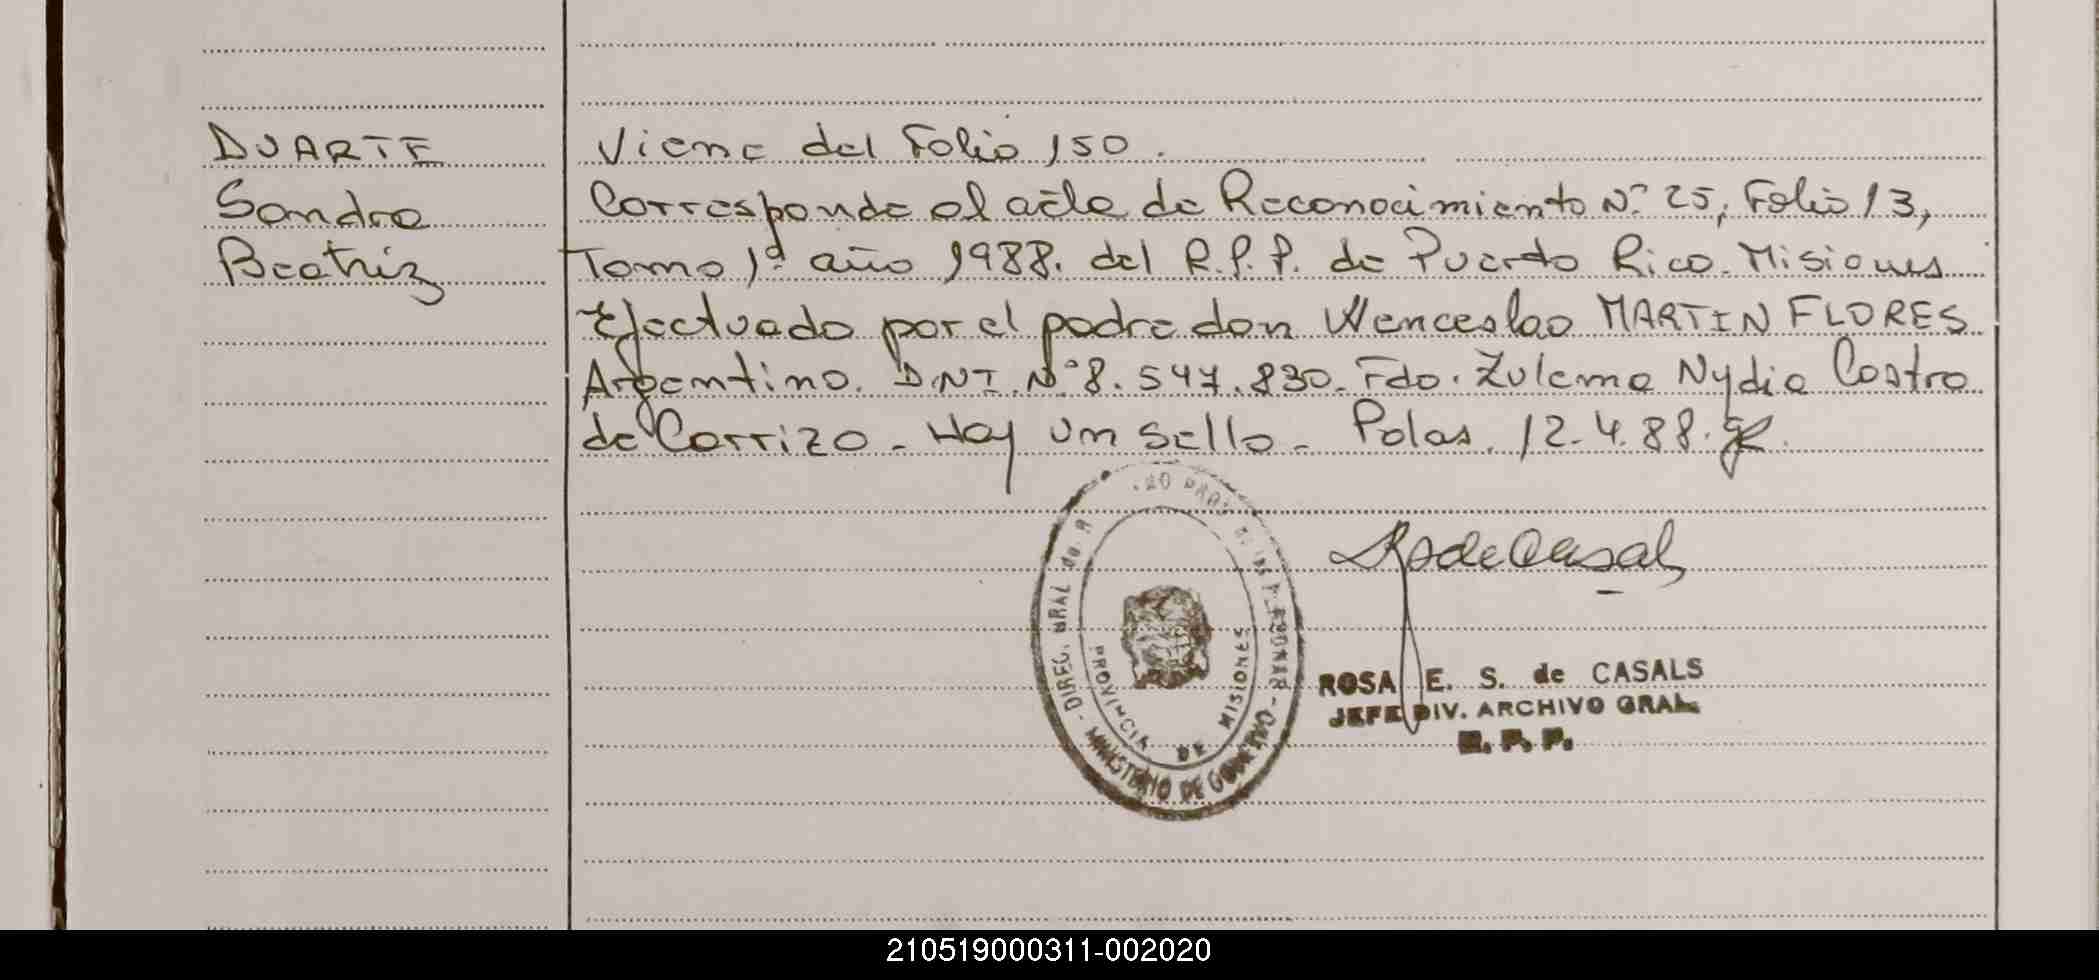 DUARTE
Sandra
Beatriz
Viene del Folio 150.
Corresponde al acta de Reconocimiento Nº 25, Folio 13,
Tomo 1º año 1988. del R.P.P. de Puerto Rico. Misiones
Efectuado por el padre don Wenceslao MARTIN FLORES
Argentino. D.N.I. Nº 8.547.830. Fdo. Zulema Nydia Castro
de Carrizo - Hay un sello - Polas. 12.4.88.
DIREC. GRAL de PROV. DE LAS PERSONAS - MINISTERIO DE GOBIERNO -
PROVINCIA DE MISIONES
RSdeCasals
ROSA E. S. de CASALS
JEFE DIV. ARCHIVO GRAL.
R. P. P.
210519000311-002020